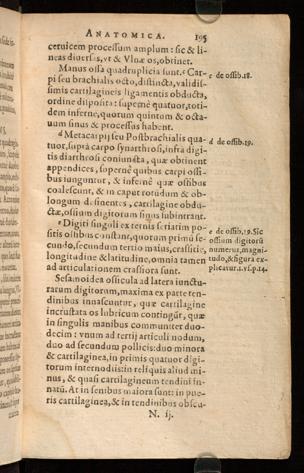 ANATOMICA. 195
ceruicem processum amplum: sic & li-
neas diuersas, vt & Vlnæ os, obtinet.
Manus ossa quadruplicia sunt. c Car-
pi seu brachialis octo, distincta, validis-
simis cartilagineis ligamentis obducta,
ordine disposita: supernè quatuor, toti-
dem infernè, quorum quintum & octa-
uum sinus & processus habent.
c de ossib. 18.
d Metacarpij seu Postbrachialis qua-
tuor, supra carpo synarthrosi, infra digi-
tis diarthrosi coniuncta, quæ obtinent
appendices, supernè quibus carpi ossi-
bus iunguntur, & infernè quæ ossibus
coalescunt, & in caput rotúdum & ob-
longum desinentes, cartilagine obdu-
ctæ, ossium digitorum sinus subintrant.
d de ossib. 19.
e Digiti singuli ex ternis seriatim po-
sitis ossibus constant, quorum primũ se-
cundo, secundum tertio maius, crassitie,
longitudine & latitudine, omnia tamen
ad articulationem crassiora sunt.
e de ossib. 19. Sic
ossium digitorũ
numerus, magni-
tudo, & figura ex-
plicatur. l. vs. p. 14.
Sesamoidea ossicula ad latera iunctu-
rarum digitorum, maxima ex parte ten-
dinibus innascuntur, quæ cartilagine
incrustata os lubricum contingũt, quæ
in singulis manibus communiter duo-
decim: vnum ad tertij articuli nodum,
duo ad secundum pollicis: duo minora
& cartilaginea, in primis quatuor digi-
torum internodijs: in reliquis aliud mi-
nus, & quasi cartilagineum tendini in-
natũ. At in senibus maiora sunt: in pue-
ris cartilaginea, & in tendinibus obscu-
N. ij.